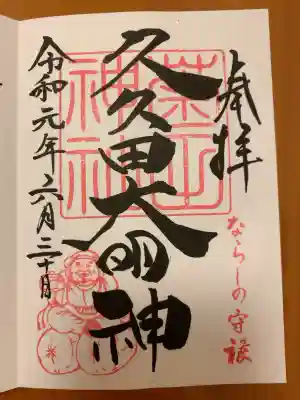 奉拝
ならしの守護
菊田
神社
久久田大明神
令和元年六月三十日